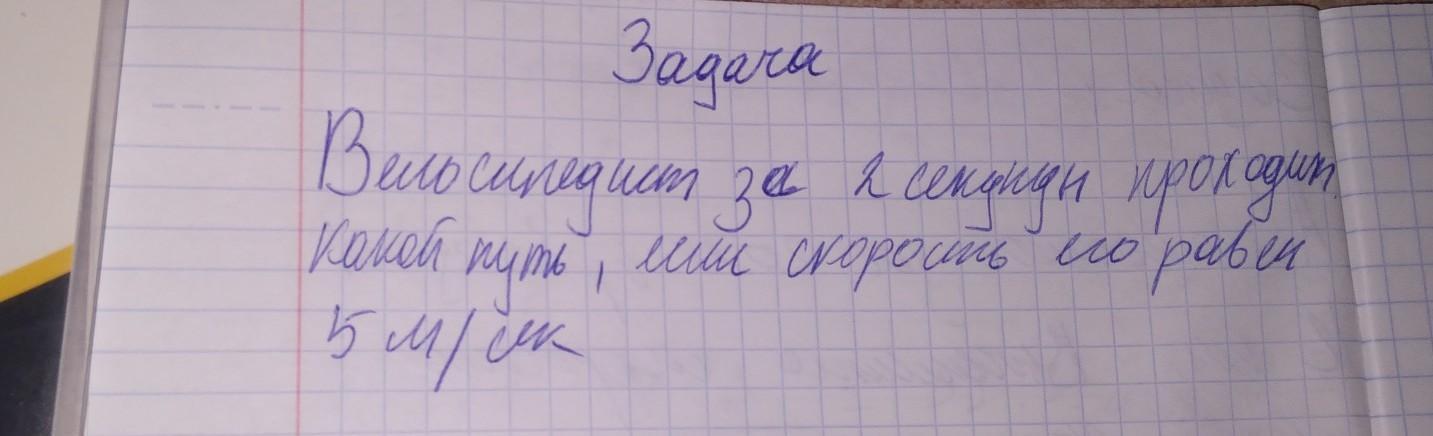 Задача
Велосипедист за 2 секунды проходит
какой путь, если скорость его равен
5 м/сек